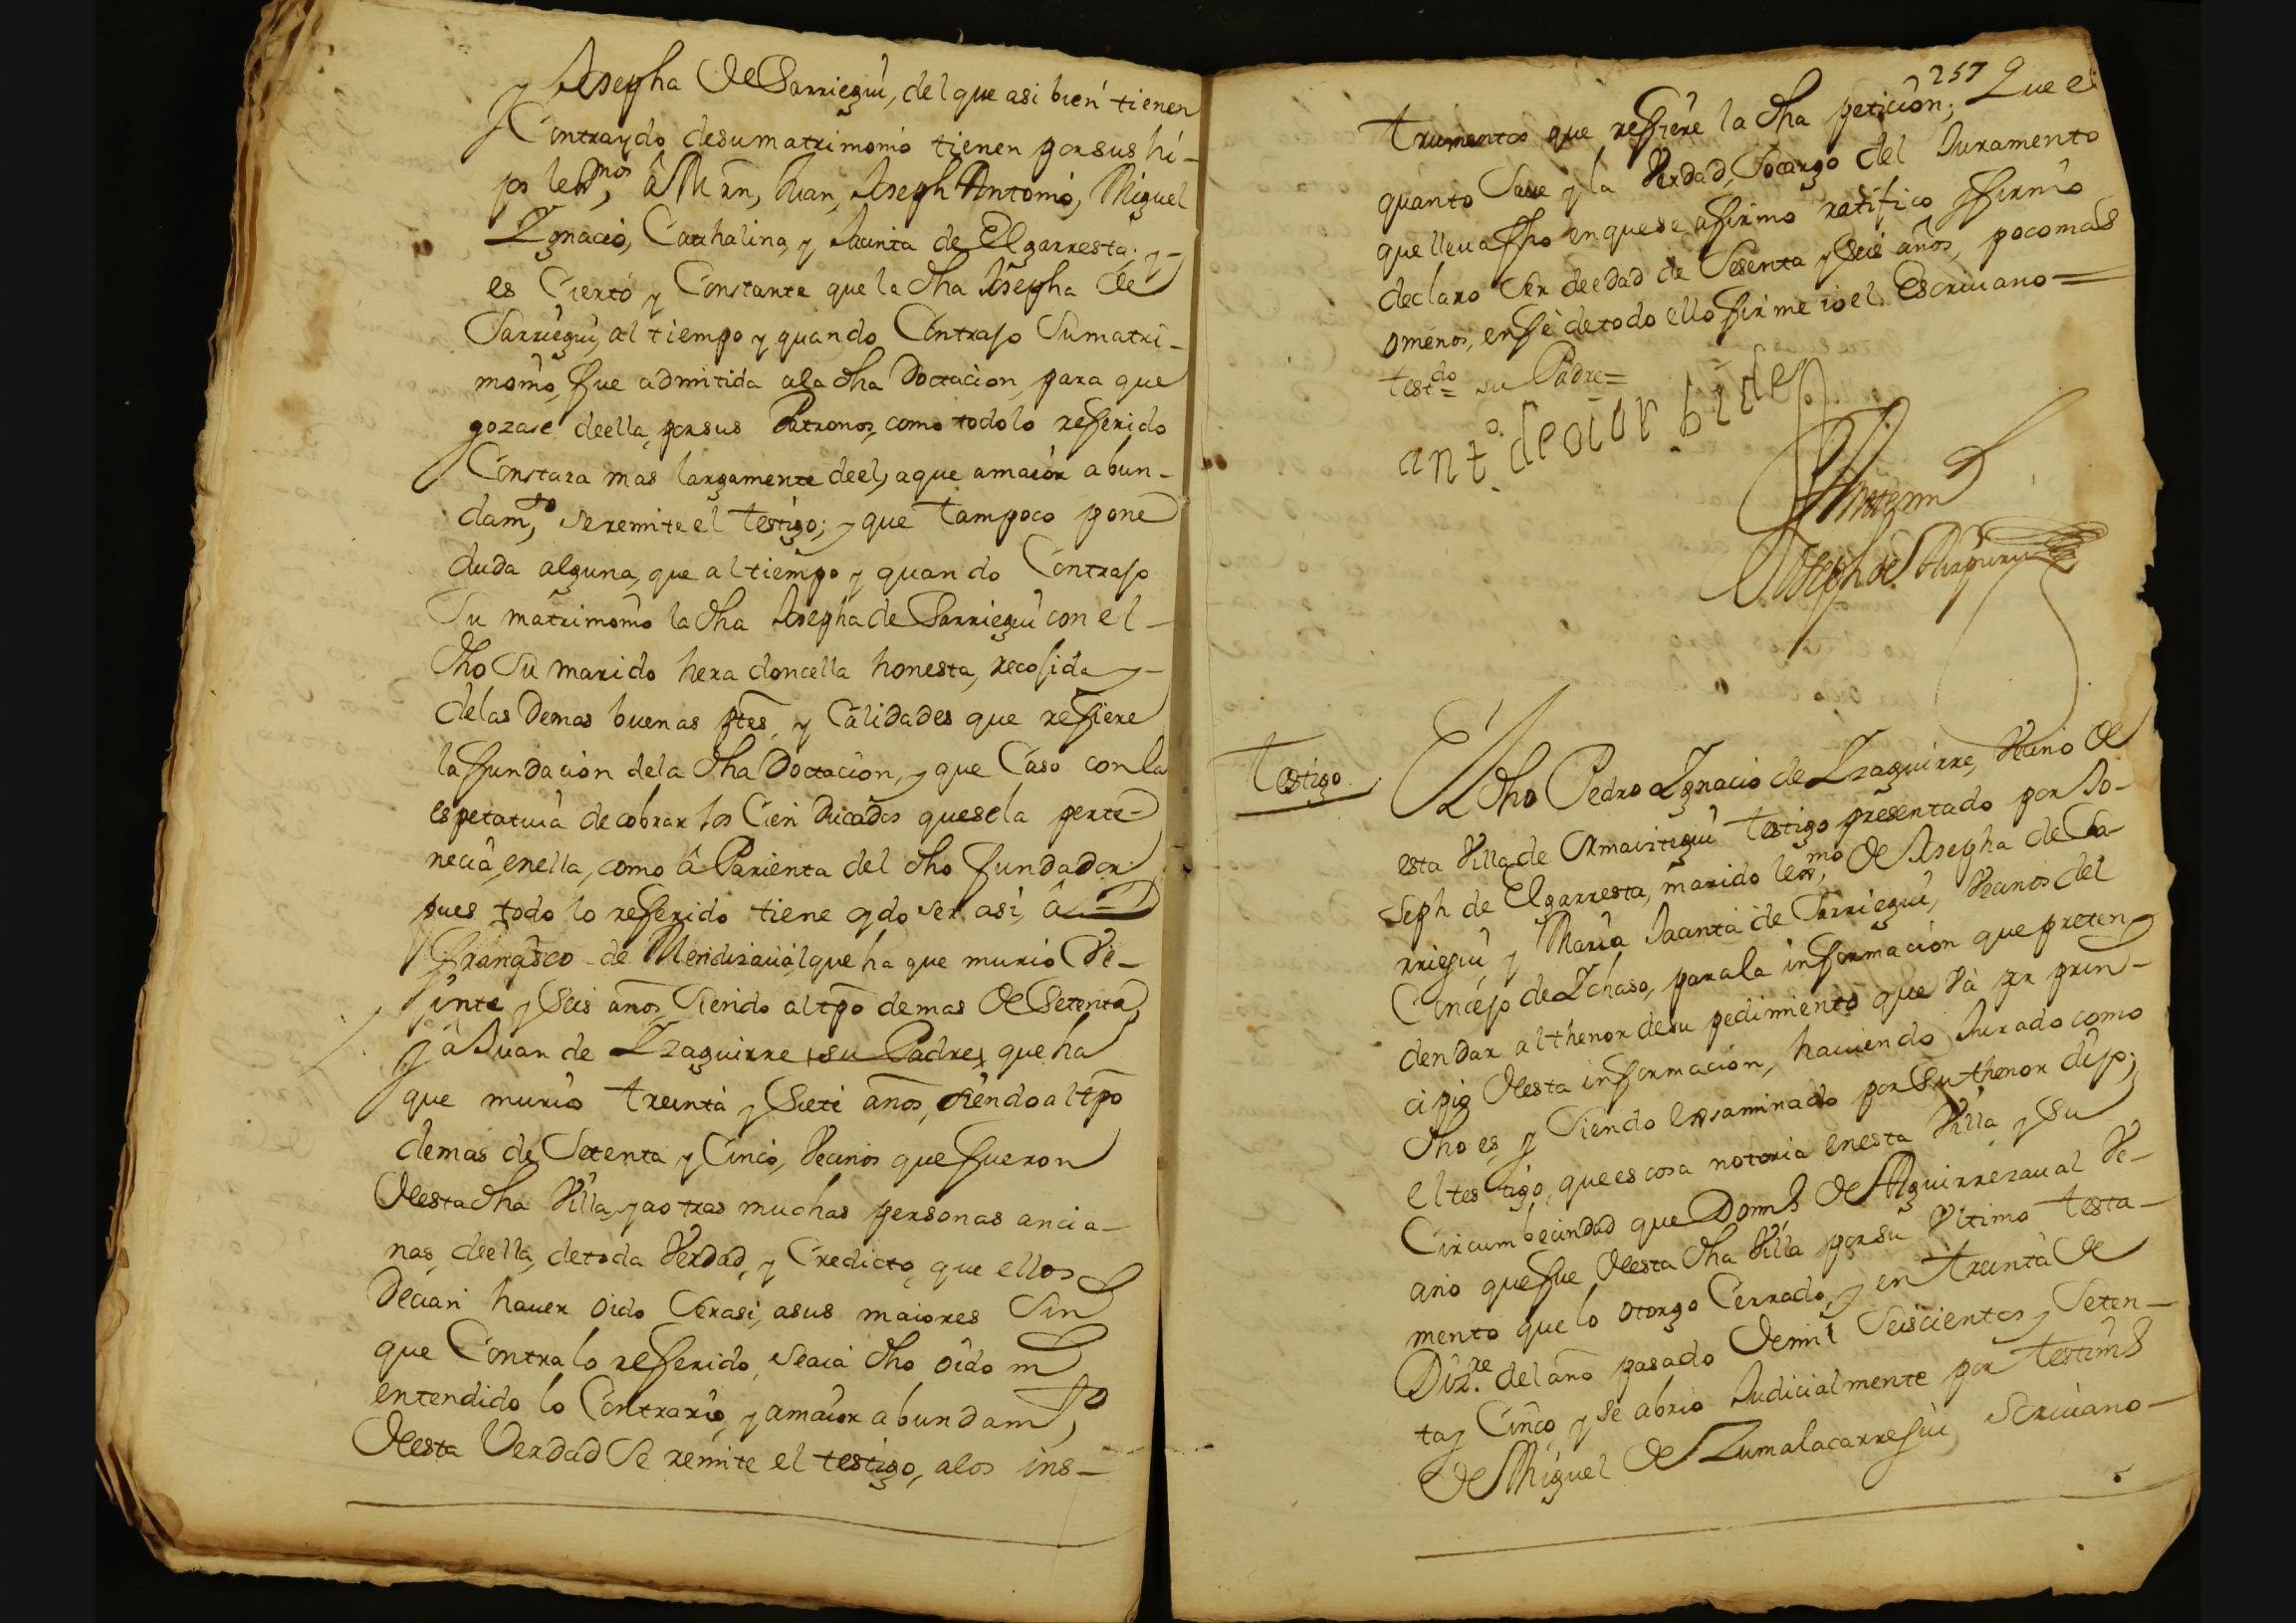 y Josepha de Sarriegui, del que asi bien tienen
Contraydo desu matrimonio tienen por sus hi-
jos lexmos, â Mrn, Juan, Joseph Antonio, Miguel
Ygnacio, Cathalina, y Jacinta de Elgarresta; y
es Cierto y Constante que la dha Josepha de
Sarriegui, al tiempo y quando Contrajo Su matri-
monio, fue admitida a la dha Doctacion, para que
gozase de ella, por sus Patronos, como todo lo referido
Constara mas largamente de el, a que amaior abun-
damto, se remite el testigo; y que tampoco pone
duda alguna, que al tiempo y quando Contrajo
Su matrimonio la dha Josepha de Sarriegui con el
dho Su marido hera doncella honesta, recojida y
delas Demas buenas ptes, y Calidades que refiere
la fundacion dela dha Doctacion, y que Caso con la
espetatiua de cobrar los Cien Ducados que se la perte-
necia, en ella, como â Parienta del dho fundador
pues todo lo referido tiene oydo ser asi, â
Francisco de Mendizaual que ha que murio Ve-
jnte y Seis años, Siendo al tpo demas de Setenta,
y â Juan de Yzaguirre su Padre, que ha
que murio treinta y Siete años, Siendo al tpo
demas de Setenta y Cinco, Vecinos que fueron
desta dha Villa, y a otras muchas personas ancia-
nas, de ella, de toda Verdad, y Credicto, que ellos
Decian hauer oido Ser asi, a sus maiores Sin
que Contra lo referido, se aia dho oido ni
entendido lo Contrario, y amaior abundamto,
desta Verdad Se remite el testigo, a los ins-
257
trumentos que refiere la dha peticion; Que es
quanto Saue y la Verdad, Socargo del Juramento
que lleua fho en que se afirmo ratifico y firmo
declaro Ser de edad de Sesenta y Seis años, poco mas
o menos, en fe de todo ello firme io el Escriuano =
testdo = su Padre =
anto de oiar bide
Ante mi
Joseph de
Testigo
El dho Pedro Ygnacio de Yzaguirre, Vecino de
esta Villa de Ormaiztegui testigo presentado por Jo-
seph de Elgarresta, marido lexmo, de Josepha de Sa-
rriegui y Maria Jacinta de Sarriegui, Vecinos del
Concejo de Ychaso, para la informacion que preten-
den dar al thenor de su pedimiento que va por prin-
cipio desta informacion, hauiendo Jurado como
dho es, y Siendo exsaminado por Su thenor dijo;
el testigo, que es cosa notoria en esta Villa y Su
Circumbecindad que Domo de Aguirrezaual Ve-
cino que fue desta dha Villa por su Vltimo testa-
mento que lo otorgo Cerrado, y en treinta de
Dizre. del año pasado de mil Seiscientos y Seten-
ta y Cinco, y se abrio Judicialmente por testimo
de Miguel de Zumalacarregui Scriuano